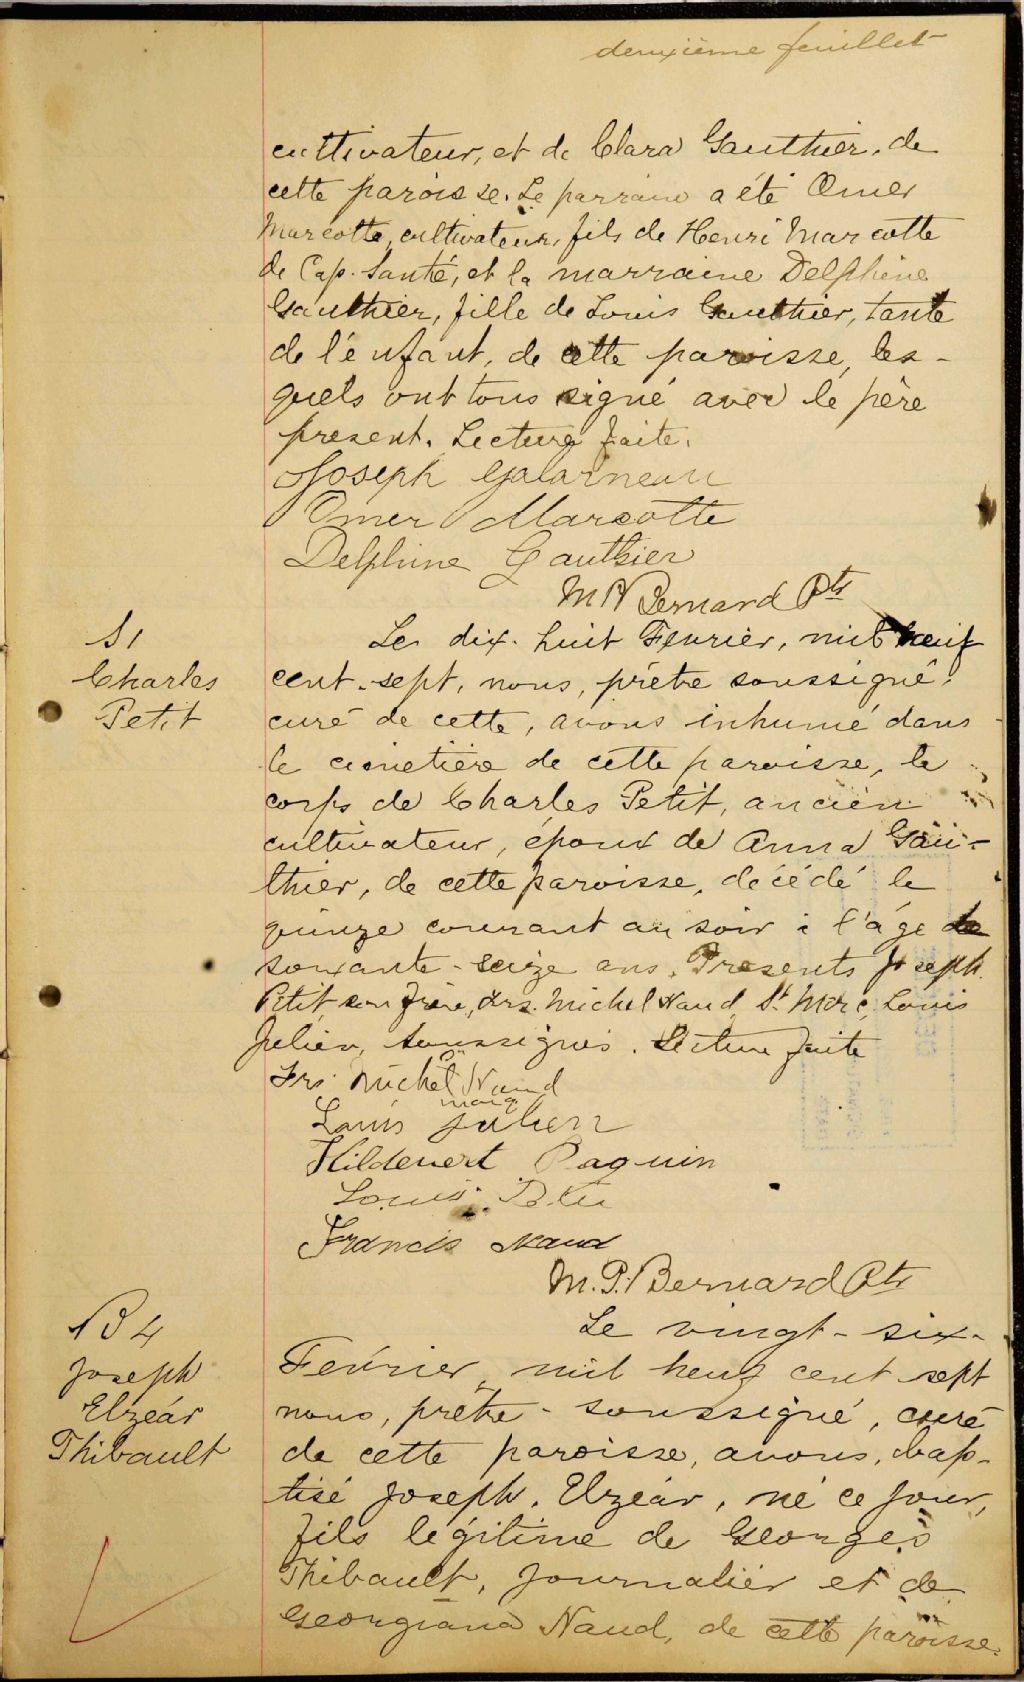 deuxième feuillet
cultivateur, et de Clara Gauthier, de
cette paroisse. Le parrain a été Omer
Marcotte, cultivateur, fils de Henri Marcotte
de Cap-Santé, et la marraine Delphine
Gauthier, fille de Louis Gauthier, tante
de l'enfant, de cette paroisse, les-
quels ont tous signé avec le père
present. Lecture faite.
Joseph Galarneau
Omer Marcotte
Delphine Gauthier
Bernard Ptr
S1
Charles
Petit
Le dix-huit Fevrier, mil neuf
cent-sept, nous, prêtre soussigné,
curé de cette, avons inhumé dans
le cimetière de cette paroisse, le
corps de Charles Petit, ancien
cultivateur, époux de Anna Gau-
thier, de cette paroisse, décédé le
quinze courant au soir à l'âge de
soixante-seize ans. Presents Joseph
Petit, son frère, Frs. Michel Naud, St Marc, Louis
Julien, soussignés. Lecture faite
Frs. Michel Naud
Louis Julien
Hildevert Paquin
Louis
Francis Naud
M. P. Bernard Ptr
B 4
Joseph
Elzéar
Thibault
Le vingt-six-
Fevrier, mil neuf cent sept
nous, prêtre-soussigné, curé
de cette paroisse, avons, bap-
tisé Joseph, Elzéar, né ce jour,
fils légitime de Georges
Thibault, journalier et de
Georgiana Naud, de cette paroisse.